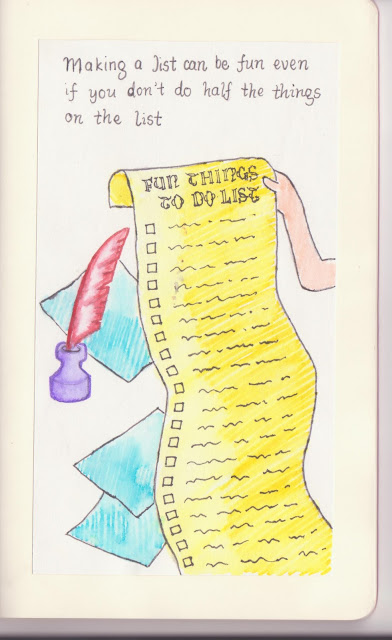 Making a list can be fun even
if you don't do half the things
on the list
FUN THINGS
TO DO LIST